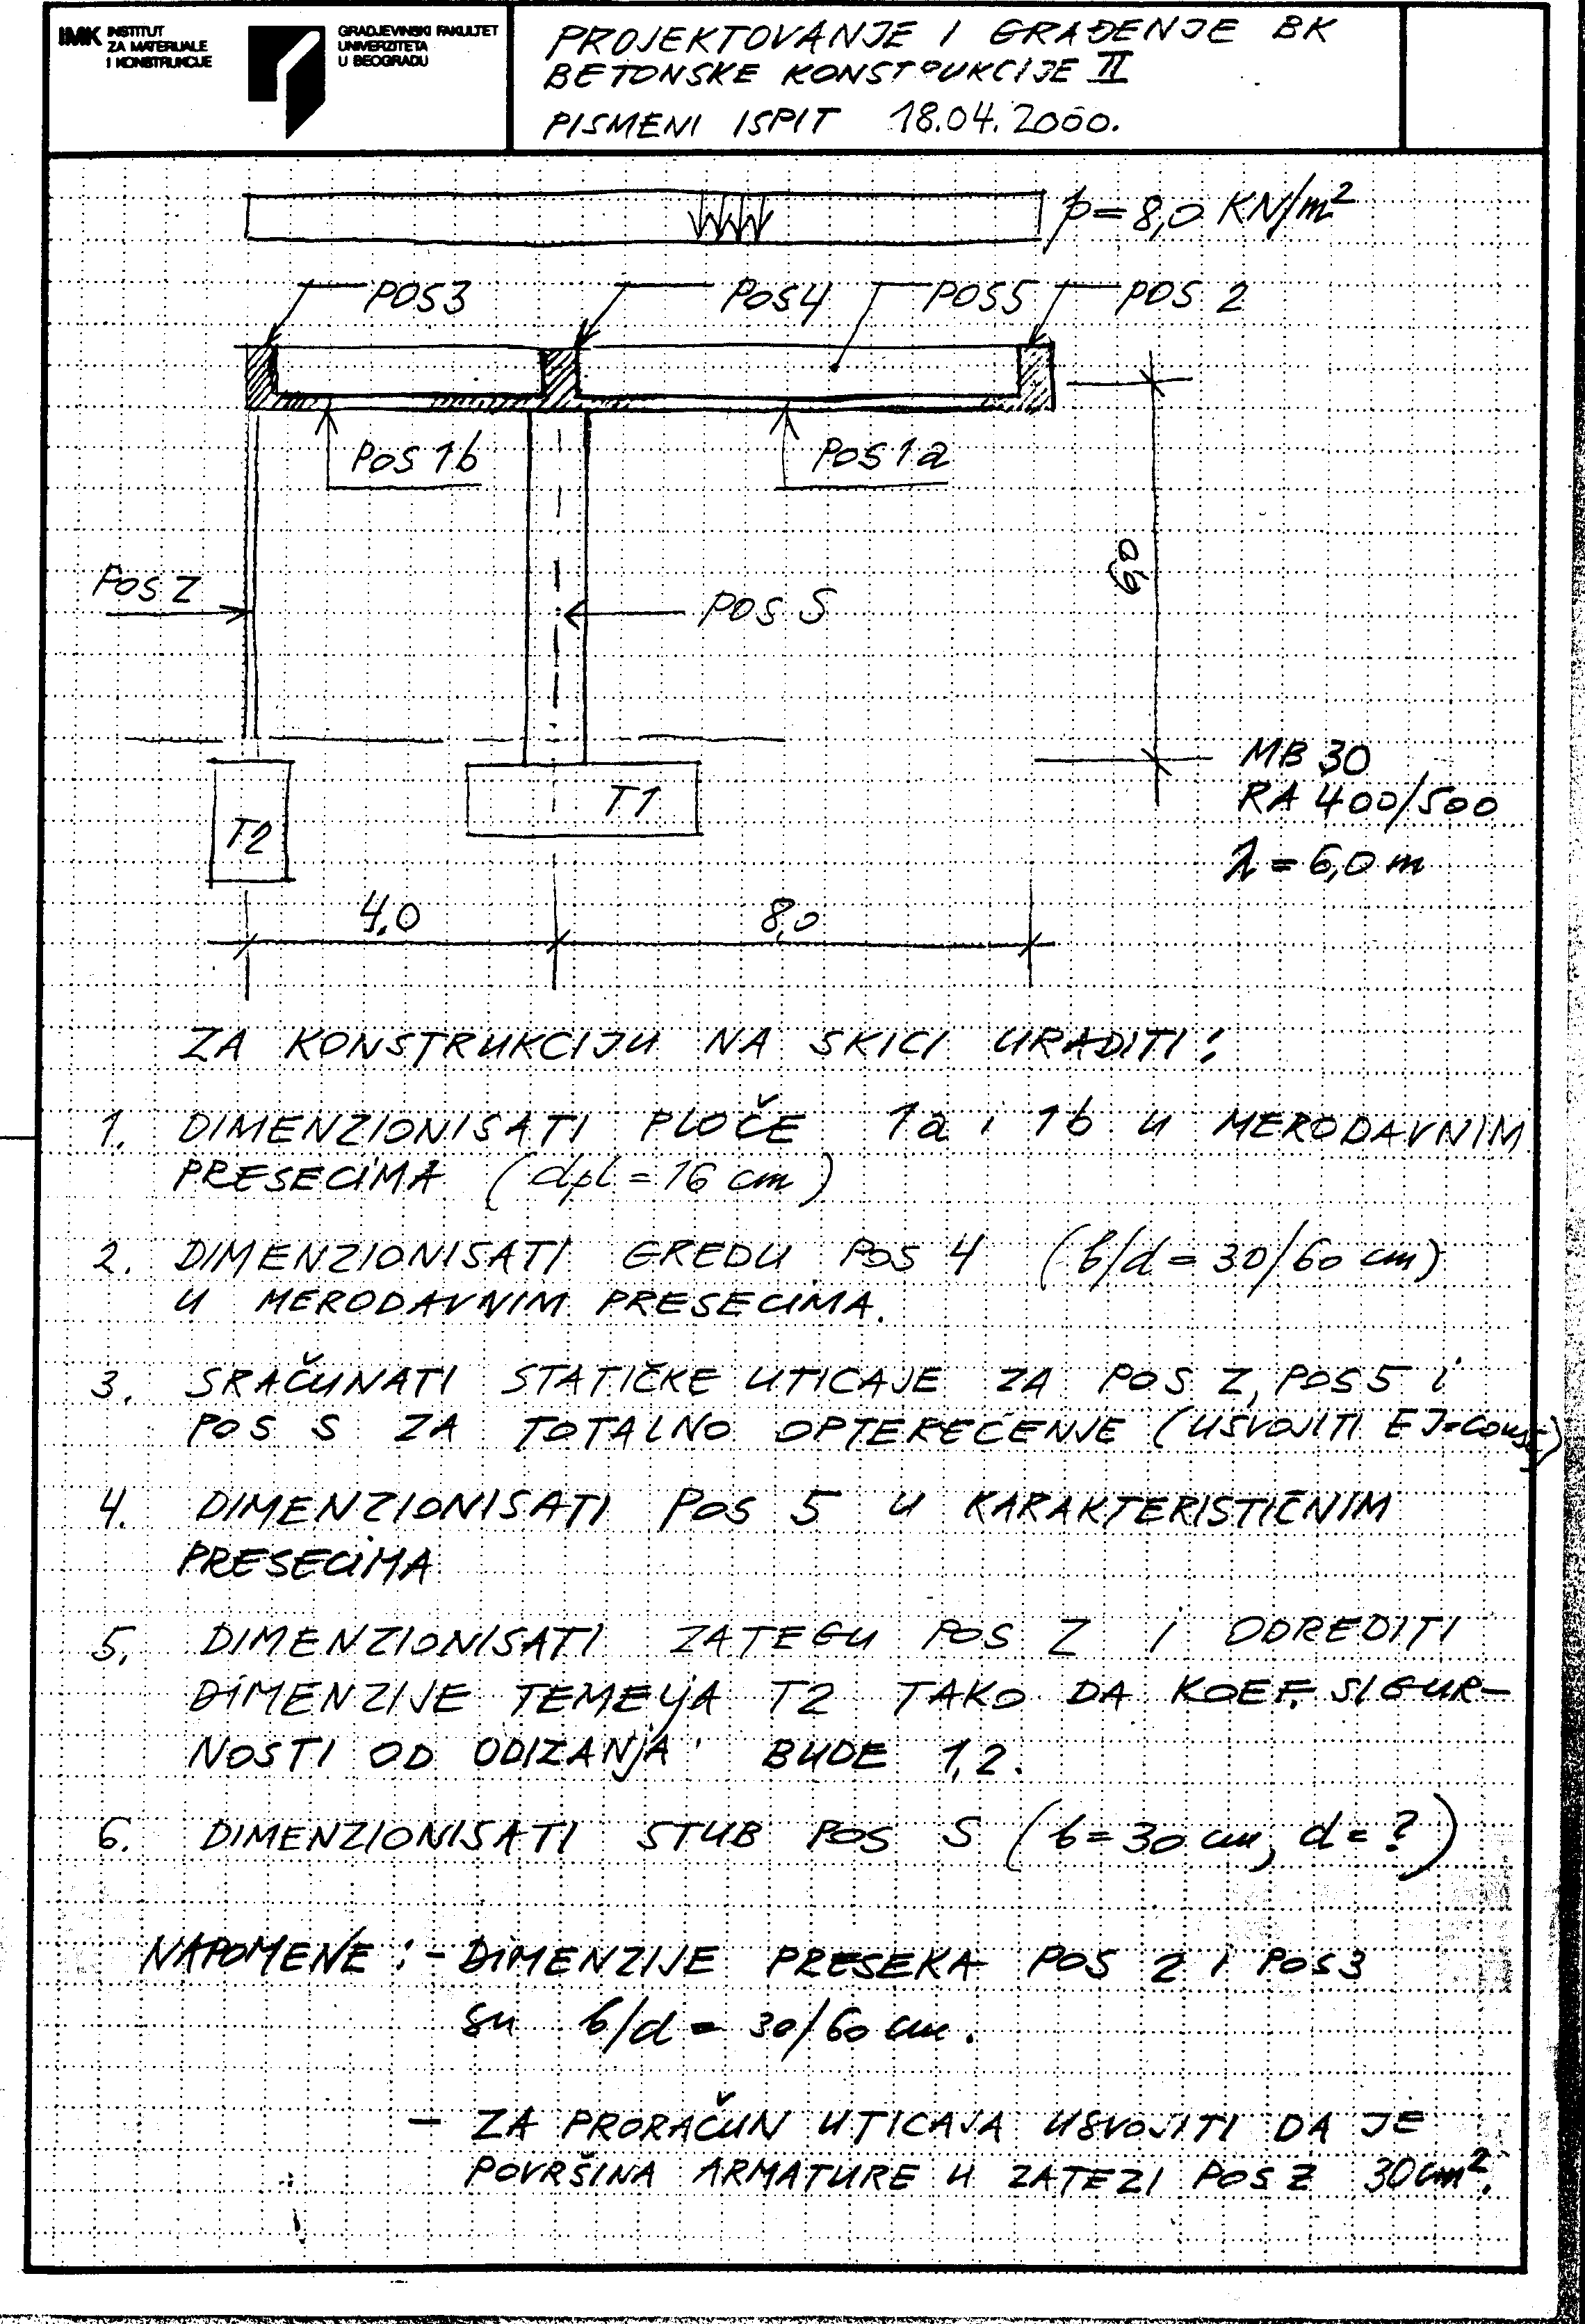 IMK INSTITUT
ZA MATERIJALE
I KONSTRUKCIJE
GRADJEVINSKI FAKULTET
UNIVERZITETA
U BEOGRADU
PROJEKTOVANJE I GRAĐENJE BK
BETONSKE KONSTRUKCIJE II
PISMENI ISPIT 18.04.2000.
p=8,0 KN/m²
POS3
POS4
POS5
POS 2
POS 1b
POS 1a
POS Z
POS S
MB 30
RA 400/500
λ = 6,0 m
T1
T2
4,0
8,0
ZA KONSTRUKCIJU NA SKICI URADITI:
1. DIMENZIONISATI PLOČE 1a i 1b U MERODAVNIM
PRESECIMA (dpl = 16 cm)
2. DIMENZIONISATI GREDU POS 4 (b/d = 30/60 cm)
U MERODAVNIM PRESECIMA.
3. SRAČUNATI STATIČKE UTICAJE ZA POS Z, POS5 i
POS S ZA TOTALNO OPTEREĆENJE (USVOJITI EJ=const)
4. DIMENZIONISATI POS 5 U KARAKTERISTIČNIM
PRESECIMA
5. DIMENZIONISATI ZATEGU POS Z I ODREDITI
DIMENZIJE TEMELJA T2 TAKO DA KOEF. SIGUR-
NOSTI OD ODIZANJA BUDE 1,2.
6. DIMENZIONISATI STUB POS S (b=30 cm, d=?)
NAPOMENE: - DIMENZIJE PRESEKA POS 2 I POS3
su b/d = 30/60 cm.
- ZA PRORAČUN UTICAJA USVOJITI DA JE
POVRŠINA ARMATURE U ZATEZI POS Z 30cm².